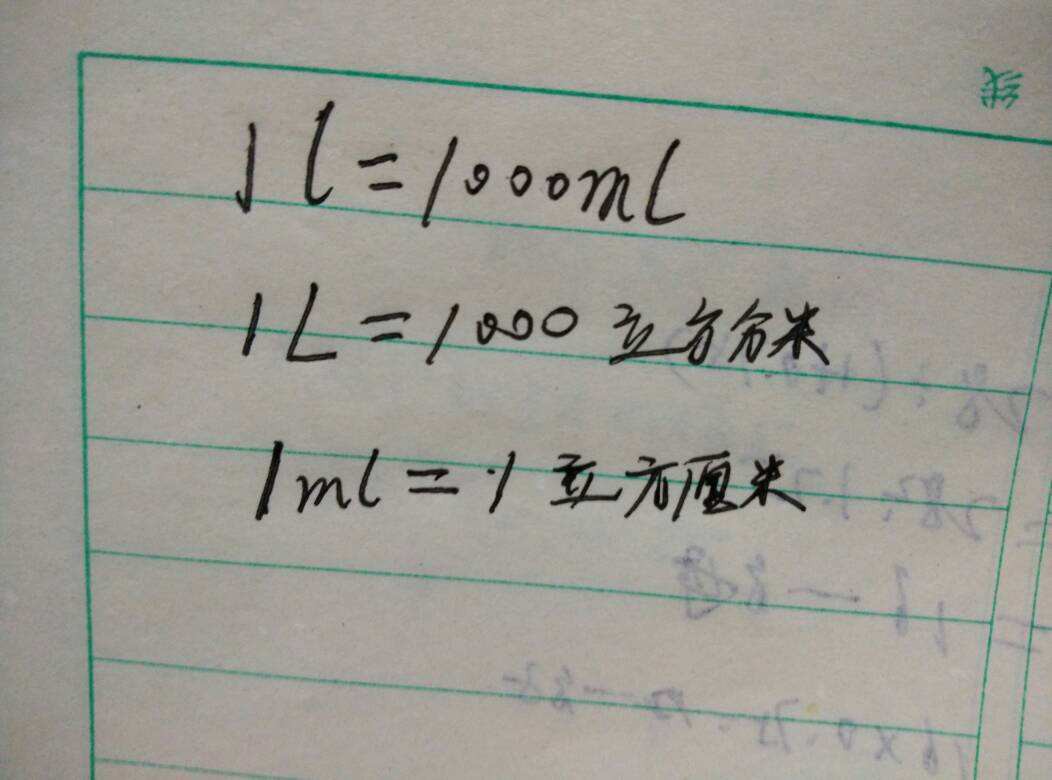 线
1l=1000ml
1L=1000立方分米
1ml=1立方厘米